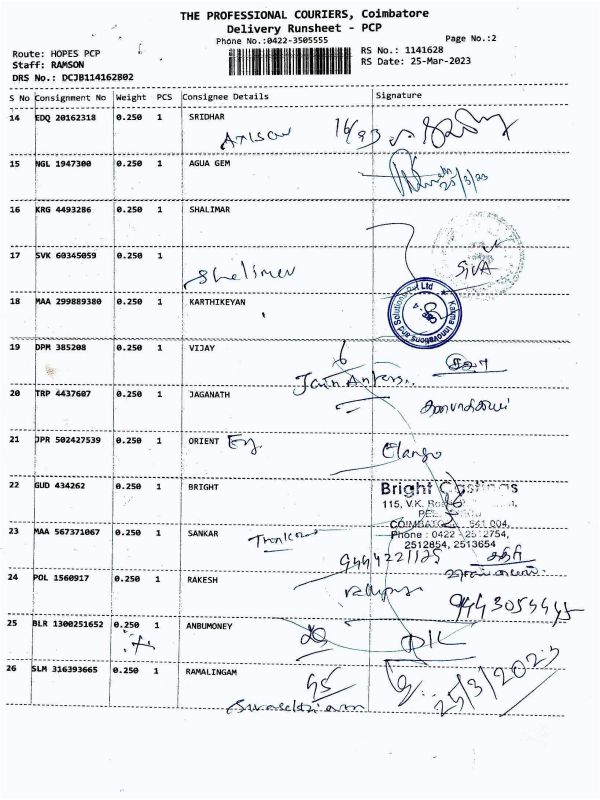 THE PROFESSIONAL COURIERS, Coimbatore
Delivery Runsheet - PCP
Phone No.:0422-3505555
Page No.:2
Route: HOPES PCP
RS No.: 1141628
Staff: RAMSON
RS Date: 25-Mar-2023
DRS No.: DCJB114162802
S No Consignment No Weight PCS Consignee Details Signature
14 EDQ 20162318 0.250 1 SRIDHAR
15 NGL 1947300 0.250 1 AGUA GEM
25/3/23
16 KRG 4493286 0.250 1 SHALIMAR
17 SVK 60345059 0.250 1
Shalimar SIVA
18 MAA 299889380 0.250 1 KARTHIKEYAN
Karma Innovations and Solutions Pvt Ltd
19 DPM 385208 0.250 1 VIJAY
20 TRP 4437607 0.250 1 JAGANATH
21 JPR 502427539 0.250 1 ORIENT Elango
22 GUD 434262 0.250 1 BRIGHT
Bright Castings
115, V.K.
COIMBATORE 641 004,
Phone : 0422 - 2512754,
2512854, 2513654
23 MAA 567371067 0.250 1 SANKAR
24 POL 1560917 0.250 1 RAKESH
25 BLR 1300251652 0.250 1 ANBUMONEY
26 SLM 316393665 0.250 1 RAMALINGAM
25/3/2023